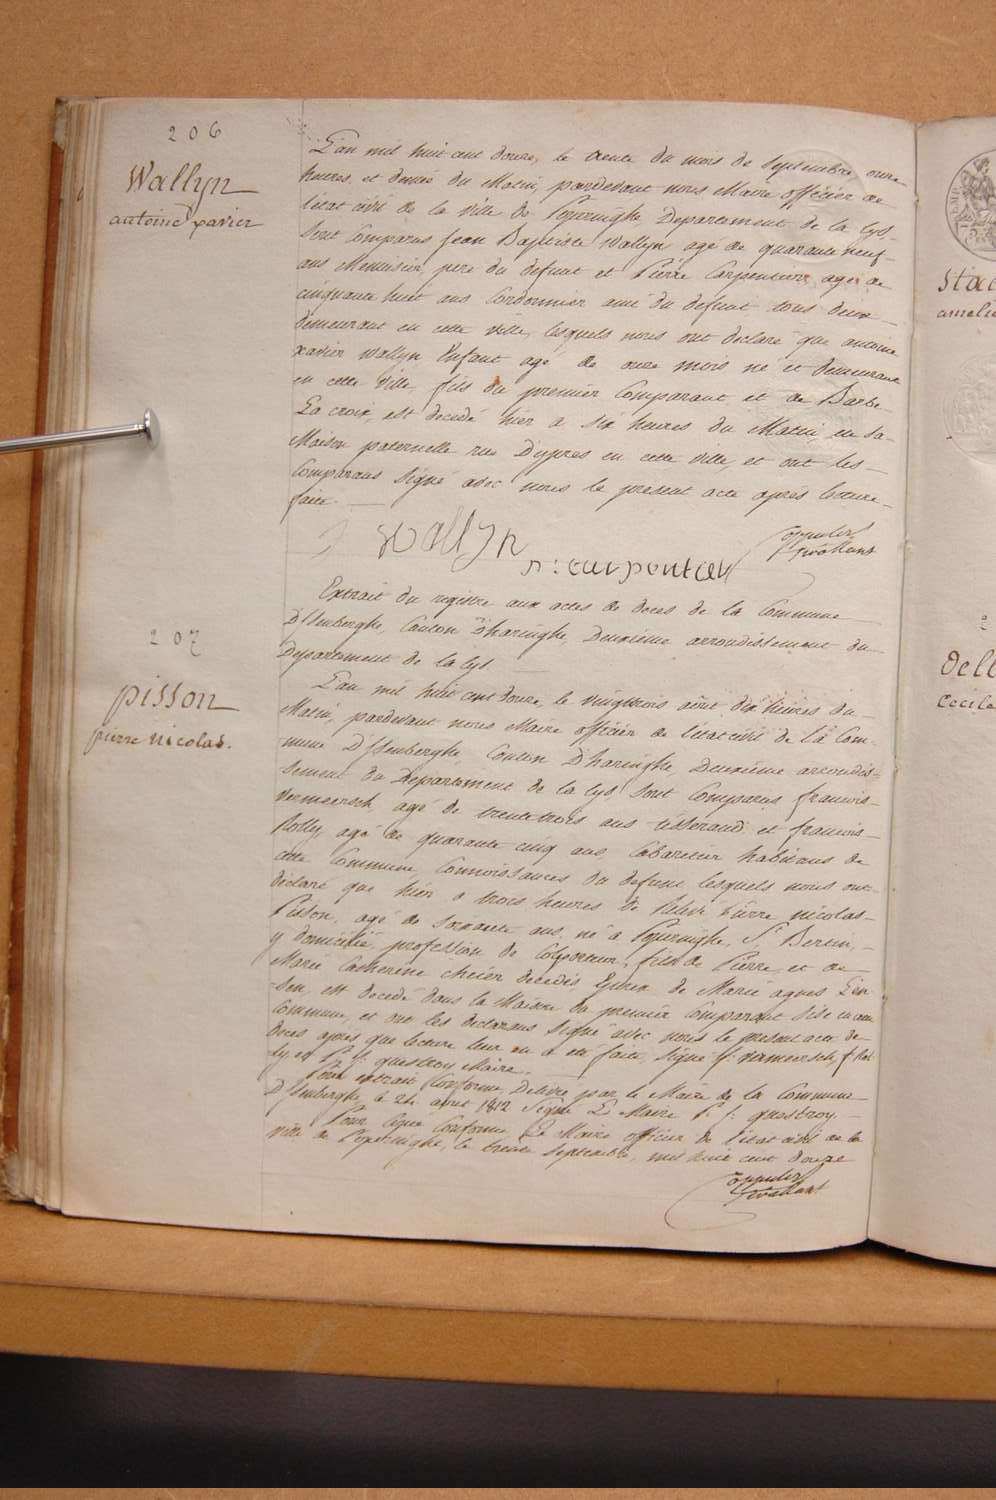 206
Wallyn
antoine xavier
L'an mil huit cent douze, le trente du mois de Septembre, onze
heures et demie du Matin, pardevant nous Maire officier de
l'état civil de la Ville de Poperinghe, Departement de la Lys
Sont Comparus Jean Baptiste Wallyn agé de quarante neuf
ans Menuisier, pere du defunt et Pierre Carpentier, agé de
cinquante huit ans Cordonnier ami du defunt tous deux
demeurant en cette Ville, lesquels nous ont declaré que antoine
xavier Wallyn Enfant agé de onze mois né et demeurant
en cette Ville, fils du premier Comparant et de Barbe
La croix, est decedé hier a six heures du Matin, en sa
Maison paternelle rue D'ypres en cette Ville, et ont les
Comparans Signé avec nous le present acte après lecture
faite
Wallyn
p: carpentier
207
pisson
pierre nicolas.
Extrait du registre aux actes de deces de la Commune
D'Isenberghe, Canton D'haringhe, Deuxième arrondissement du
Departement de la Lys
L'an mil huit cent douze, le vingt trois août dix heures du
Matin, pardevant nous Maire officier de l'état civil de la Com-
mune D'Isenberghe, Canton D'haringhe, Deuxième arrondis-
sement du Departement de la Lys Sont Comparus francois
Vermeersch, agé de trente trois ans tisserand et francois
Rolly agé de quarante cinq ans, Cabaretier habitans de
cette Commune, Connoissances du defunt lesquels nous ont
déclaré que hier a trois heures de Relevé Pierre nicolas
Pisson, agé de soixante ans, né a Poperinghe, St Bertin,
y domicilié, profession de Colporteur, fils de Pierre et de
Marie Catherine decedés Epoux de Marie agnes
est decedé dans la Maison du premier Comparant sise en cette
Commune, et ont les declarans Signé avec nous le present acte de
deces après que lecture leur en a été faite, Signé f: vermeersch, f: Rol
ly, et P. J: questroy Maire.
Pour extrait Conforme Délivré par le Maire de la Commune
D'Isenberghe, le 24 aout 1812 Signé Le Maire P. J: questroy.
Pour Copie Conforme Le Maire officier de l'état civil de la
Ville de Poperinghe, le trente Septembre, mil huit cent douze
Stac
Dell
Cecile